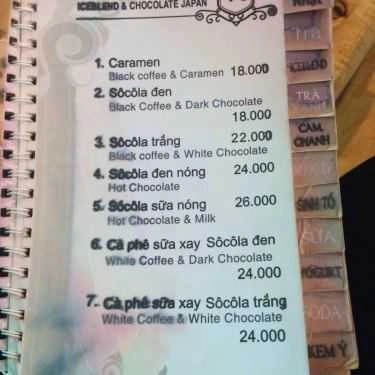 ICEBLEND & CHOCOLATE JAPAN
1. Caramen
Black coffee & Caramen 18.000
2. Sôcôla đen
Black Coffee & Dark Chocolate
18.000
3. Sôcôla trắng 22.000
Black coffee & White Chocolate
4. Sôcôla đen nóng 24.000
Hot Chocolate
5. Sôcôla sữa nóng 26.000
Hot Chocolate & Milk
6. Cà phê sữa xay Sôcôla đen
White Coffee & Dark Chocolate
24.000
7. Cà phê sữa xay Sôcôla trắng
White Coffee & White Chocolate
24.000
NHẬT
Trà
ICEBLEND
TRÀ
CAM,
CHANH
SINH TỐ
SỮA
YOGURT
SODA
KEM Ý